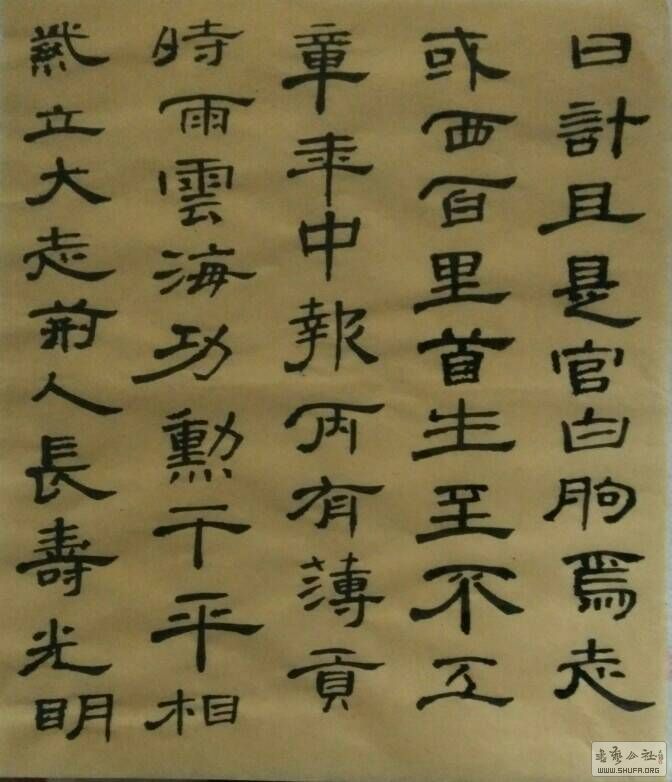 日計且是官白朐焉志
或西百里首生至不互
章年中報丙有薄貢
時雨雲海功勳干平相
立大志前人長壽光明
书艺公社
WWW.SHUFA.ORG